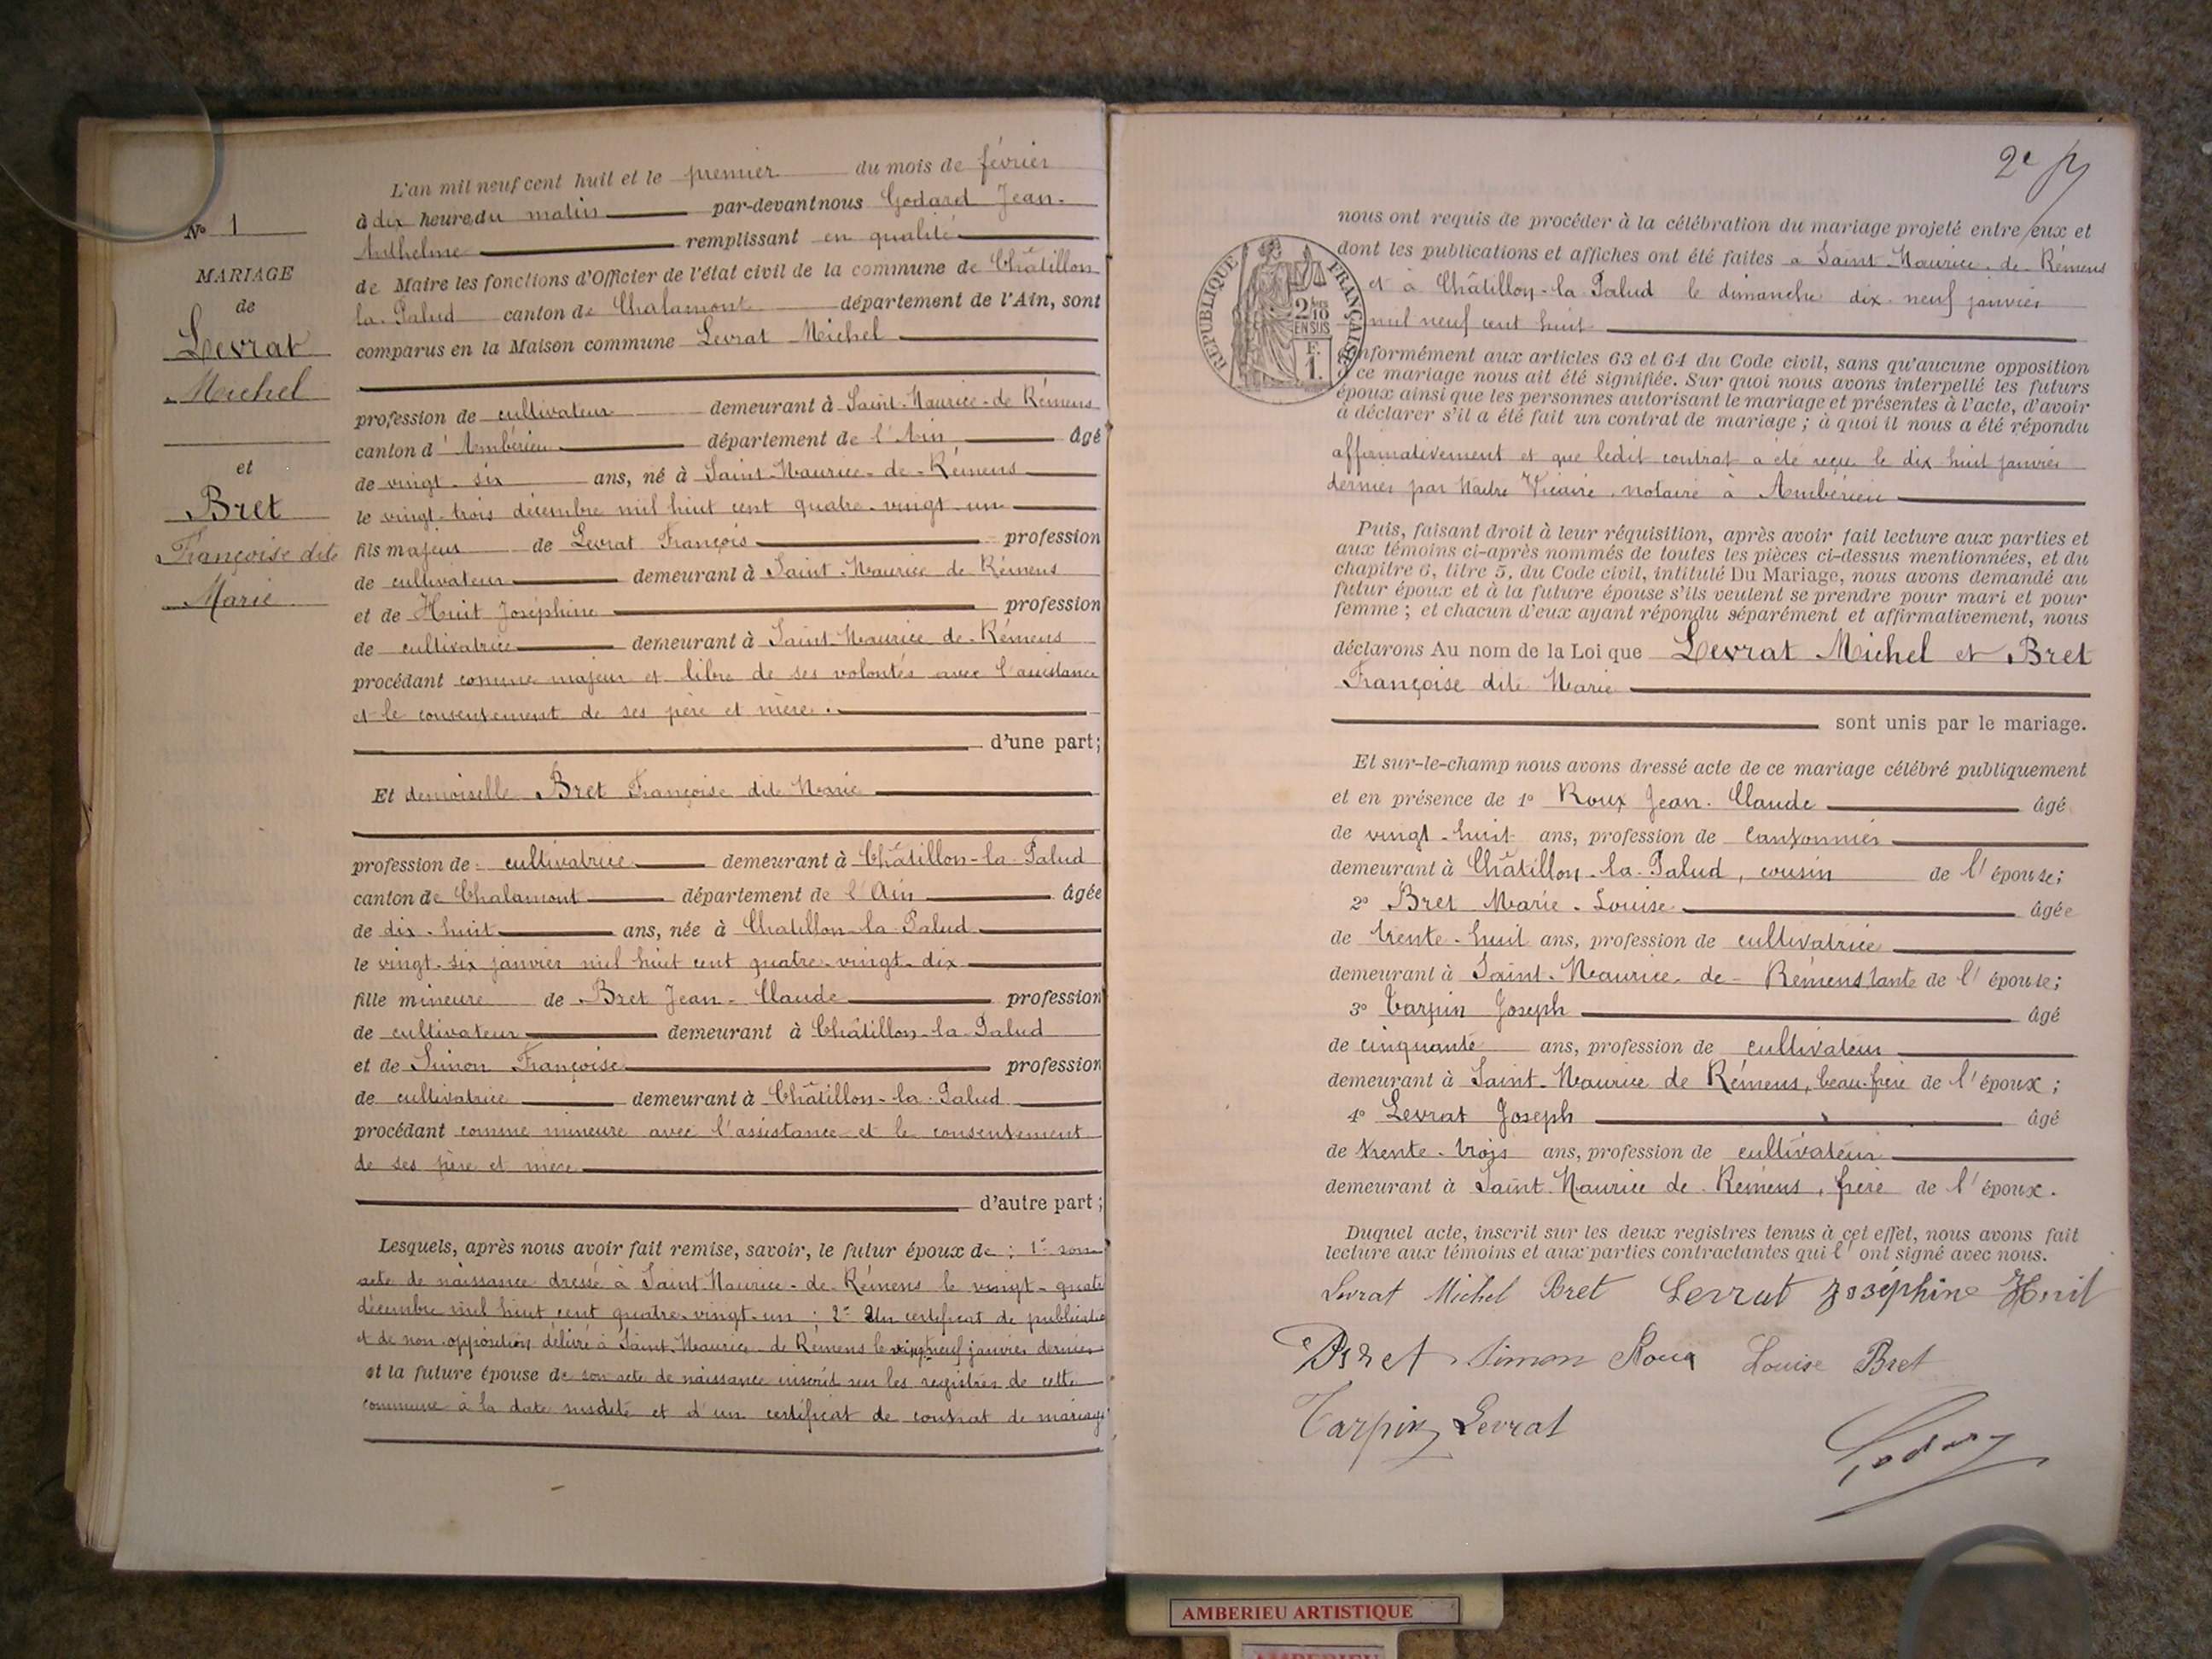 N° 1
MARIAGE
de
Levrat
Michel
et
Bret
Françoise dite
Marie
L'an mil neuf cent huit et le premier du mois de février
à dix heures du matin par-devant nous Godard Jean-
Anthelme remplissant en qualité
de Maire les fonctions d'Officier de l'état civil de la commune de Châtillon
la-Palud canton de Chalamont département de l'Ain, sont
comparus en la Maison commune Levrat Michel
profession de cultivateur demeurant à Saint-Maurice-de Rémens
canton d'Ambérieu département de l'Ain âgé
de vingt-six ans, né à Saint-Maurice-de-Rémens
le vingt-trois décembre mil huit cent quatre-vingt-un
fils majeur de Levrat François profession
de cultivateur demeurant à Saint-Maurice de Rémens
et de Huit Joséphine profession
de cultivatrice demeurant à Saint-Maurice de-Rémens
procédant comme majeur et libre de ses volontés avec l'assistance
et le consentement de ses père et mère.
d'une part;
Et demoiselle Bret Françoise dite Marie
profession de cultivatrice demeurant à Châtillon-la-Palud
canton de Chalamont département de l'Ain âgée
de dix-huit ans, née à Chatillon-la-Palud
le vingt-six janvier mil huit cent quatre-vingt-dix
fille mineure de Bret Jean-Claude profession
de cultivateur demeurant à Châtillon-la-Palud
et de Simon Françoise profession
de cultivatrice demeurant à Châtillon-la-Palud
procédant comme mineure avec l'assistance et le consentement
de ses père et mère
d'autre part;
Lesquels, après nous avoir fait remise, savoir, le futur époux de : 1° son
acte de naissance dressé à Saint Maurice-de-Rémens le vingt-quatre
décembre mil huit cent quatre-vingt-un ; 2° Un certificat de publication
et de non-opposition délivré à Saint-Maurice-de Rémens le vingt neuf janvier dernier
et la future épouse de son acte de naissance inscrit sur les registres de cette
commune à la date susdite et d'un certificat de contrat de mariage
2e
nous ont requis de procéder à la célébration du mariage projeté entre eux et
dont les publications et affiches ont été faites à Saint-Maurice-de-Rémens
et à Châtillon-la-Palud le dimanche dix-neuf janvier
mil neuf cent huit
RÉPUBLIQUE FRANÇAISE
2/10
EN SUS
F.
1.
conformément aux articles 63 et 64 du Code civil, sans qu'aucune opposition
à ce mariage nous ait été signifiée. Sur quoi nous avons interpellé les futurs
époux ainsi que les personnes autorisant le mariage et présentes à l'acte, d'avoir
à déclarer s'il a été fait un contrat de mariage ; à quoi il nous a été répondu
affirmativement et que ledit contrat a été reçu le dix huit janvier
dernier par Maître Vicaire, notaire à Ambérieu
Puis, faisant droit à leur réquisition, après avoir fait lecture aux parties et
aux témoins ci-après nommés de toutes les pièces ci-dessus mentionnées, et du
chapitre 6, titre 5, du Code civil, intitulé Du Mariage, nous avons demandé au
futur époux et à la future épouse s'ils veulent se prendre pour mari et pour
femme ; et chacun d'eux ayant répondu séparément et affirmativement, nous
déclarons Au nom de la Loi que Levrat Michel et Bret
Françoise dite Marie
sont unis par le mariage.
Et sur-le-champ nous avons dressé acte de ce mariage célébré publiquement
et en présence de 1° Roux Jean-Claude âgé
de vingt-huit ans, profession de Cantonnier
demeurant à Châtillon-la-Palud, cousin de l'épouse;
2° Bret Marie-Louise âgée
de trente-huit ans, profession de cultivatrice
demeurant à Saint-Maurice-de-Rémens tante de l'épouse;
3° Tarpin Joseph âgé
de cinquante ans, profession de cultivateur
demeurant à Saint-Maurice de Rémens, beau-frère de l'époux;
4° Levrat Joseph âgé
de trente-trois ans, profession de cultivateur
demeurant à Saint-Maurice de Rémens, frère de l'époux.
Duquel acte, inscrit sur les deux registres tenus à cet effet, nous avons fait
lecture aux témoins et aux parties contractantes qui l'ont signé avec nous.
Levrat Michel Bret Levrat Joséphine Huit
Bret Simon Roux Louise Bret
Tarpin Levrat
Godard
AMBERIEU ARTISTIQUE
AMBERIEU